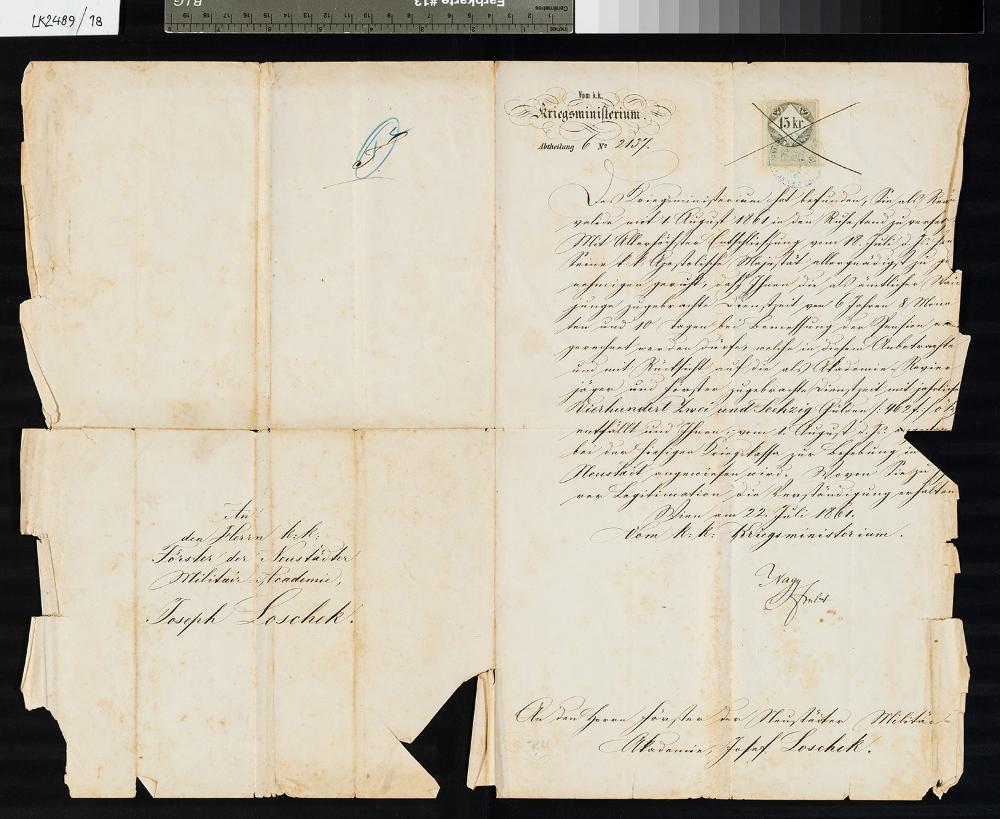 LK2489/18
B.I.G.
Farbkarte #13
Centimetres
Inches
An
den Herrn k:k:
Förster der Neustädter
Militair Academie,
Joseph Loschek.
Vom k.k.
Kriegsministerium.
Abtheilung 6 No 2137.
15 kr.
Das Kriegsministerium hat befunden, Sie als
valide mit 1. August 1861 in den Ruhestand zu
Mit Allerhöchster Entschließung vom 18. Juli d. J.
Seine k. k. Apostolisch Majestät allergnädigst zu
nehmigen geruht, daß Ihnen die als ämtlicher
junge zugebrachte Dienstzeit von 6 Jahren 8 Mona
ten und 10 Tagen bei Bemessung der Pension
gerechnet werden dürfe, welche in diesem Anbetrachte
und mit Rücksicht auf die als Akademie Revier
jäger und Förster zugebrachte Dienstzeit mit
Vierhundert Zwei und Sechzig Gulden /: 462 f :/
entfällt und Ihnen vom 1. August d. J.
bei der hiesigen Kriegskassa zur Behebung in
Neustadt angewiesen wird. Wovon Sie zu
rer Legitimation die Verständigung erhalten
Wien am 22. Juli 1861.
Vom k. k. Kriegsministerium.
An den Herrn Förster der Neustädter Militär-
Akademie, Josef Loschek.